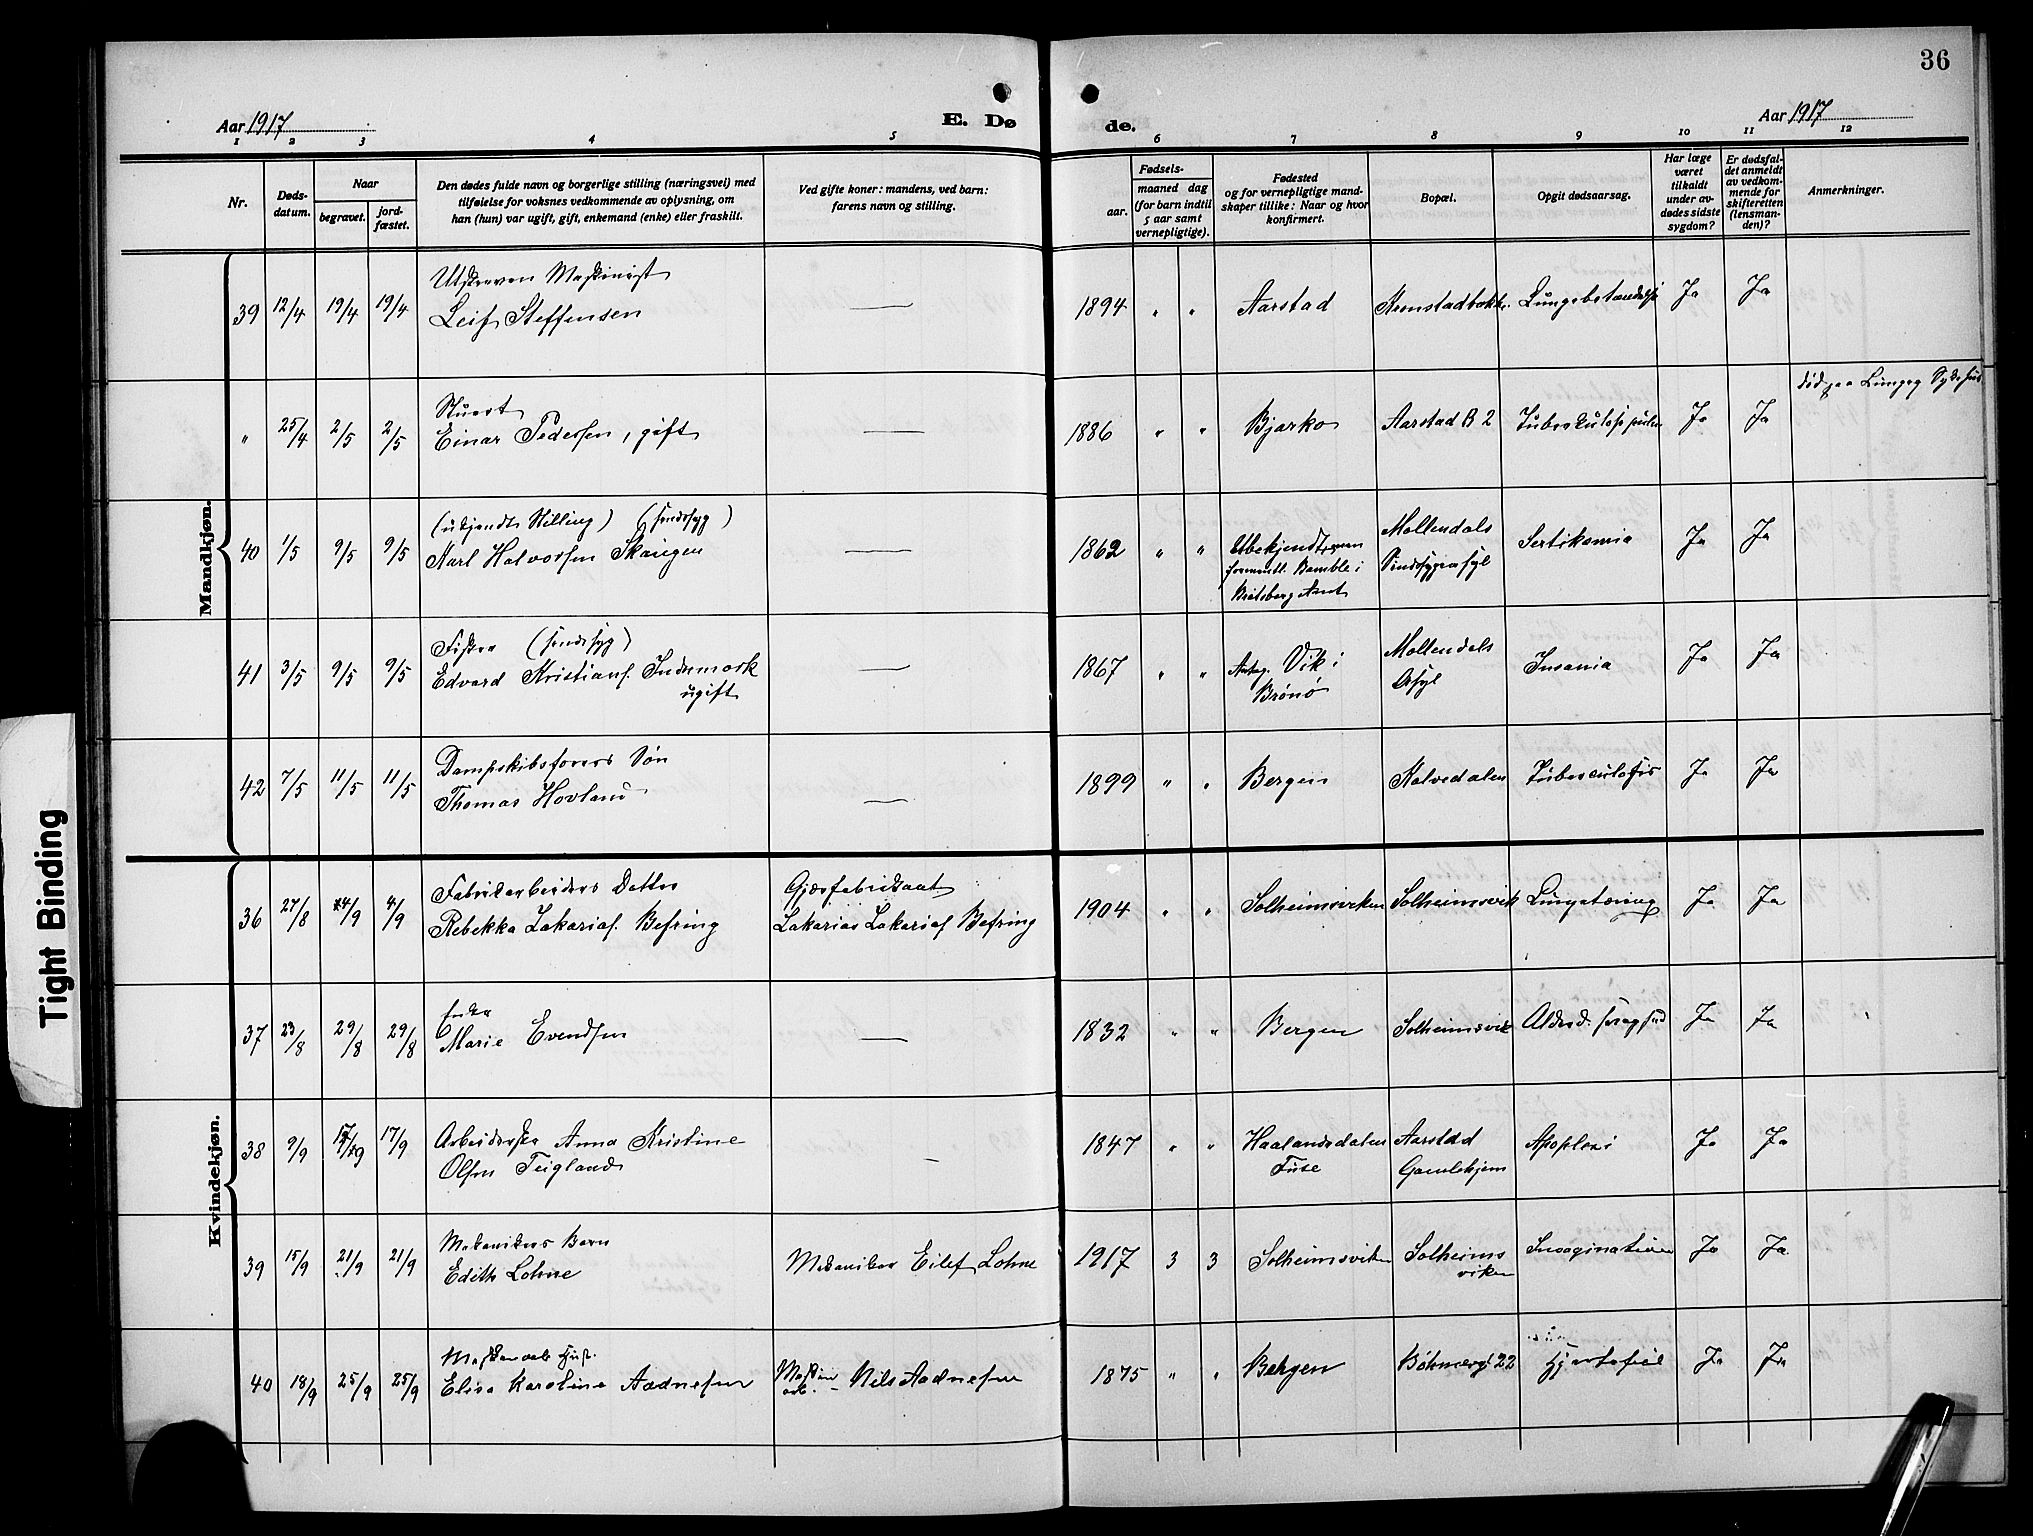 36
Aar 1917
E. Dø
de.
Aar 1917
1 2 3 4 5 6 7 8 9 10 11 12
Nr.
Døds-
datum.
Naar
begravet.
jord-
fæstet.
Den dødes fulde navn og borgerlige stilling (næringsvei) med
tilføielse for voksnes vedkommende av oplysning, om
han (hun) var ugift, gift, enkemand (enke) eller fraskilt.
Ved gifte koner: mandens, ved barn:
farens navn og stilling.
Fødsels-
aar.
maaned dag
(for barn indtil
5 aar samt
vernepligtige).
Fødested
og for vernepligtige mand-
skaper tillike: Naar og hvor
konfirmert.
Bopæl.
Opgit dødsaarsag.
Har læge
været
tilkaldt
under av-
dødes sidste
sygdom?
Er dødsfal-
det anmeldt
av vedkom-
mende for
skifteretten
(lensman-
den)?
Anmerkninger.
Mandkjøn.
Utskreven Maskinist
39 12/4 19/4 19/4 Leif Steffensen — 1894 " " Aarstad Lungebetændelse Ja Ja
død paa Lungeg Sykehus
Stuert
" 25/4 2/5 2/5 Einar Pedersen, gift — 1886 " " Bjarko Aarstad B 2 Ja Ja
(ukjendt Stilling) (sindssyg)
40 1/5 9/5 9/5 Karl Halvorsen Skaugen — 1862 " " Ubekjendt, men
forment. Bamble i
Bratsberg Amt
Mollendals
Sindssygeasyl
Septikæmia Ja Ja
Fisker (sindssyg)
41 3/5 9/5 9/5 Edvard Kristians. Indermark
ugift
— 1867 " " Vik i
Brønø
Mollendals
Asyl
Insania Ja Ja
Dampskibsførers Søn
42 7/5 11/5 11/5 Thomas Hovland — 1899 " " Bergen Kalvedalen Tuberculosis Ja Ja
Kvindekjøn.
Fabrikarbeiders Datter
36 27/8 4/9 4/9 Rebekka Zakarias. Befring
Gjærfabrikant
Zakarias Zakarias. Befring
1904 " " Solheimsviken Solheimsvik Lungetæring Ja Ja
Enke
37 23/8 29/8 29/8 Marie Evendsen — 1832 " " Bergen Solheimsvik Ja Ja
38 9/9 17/9 17/9 Arbeiderske Anna Kristine
Olsen Teigland
— 1847 " " Haalandsdalen
Fuse
Aarstad
Gamlehjem
Apoplexi Ja Ja
Mekanikers Barn
39 15/9 21/9 21/9 Edith Lohne Mekaniker Eilef Lohne 1917 3 3 Solheimsviken Solheims
viken
Invagination Ja Ja
Maskinarb. Hust.
40 18/9 25/9 25/9 Elisa Karoline Aadnesen
Maskin
arb. - Nils Aadnesen
1875 " " Bergen Bøhmergt 22 Hjertefeil Ja Ja
Tight Binding